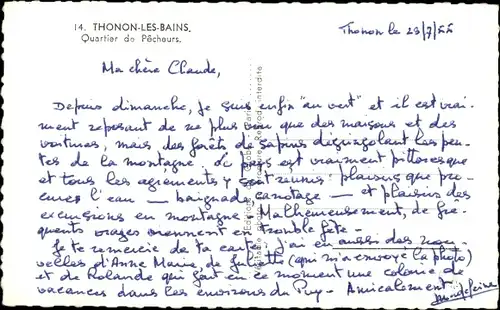 14. THONON-LES-BAINS.
Quartier de Pêcheurs.
Thonon le 29/7/55
Ma chère Claude,
Depuis dimanche, je suis enfin "au vert" et il est vrai-
ment reposant de ne plus voir que des maisons et des
voitures, mais des forêts de sapins dégringolant les pen-
tes de la montagne. Le pays est vraiment pittoresque
et tous les agréments y sont réunis : plaisirs que pro-
curent l'eau — baignade canotage — et plaisirs des
excursions en montagne. Malheureusement, de fré-
quents orages viennent en trouble fête -
Je te remercie de ta carte. J'ai eu aussi des nou-
velles d'Anne Marie, de Juliette (qui m'a envoyé la photo)
et de Rolande qui fait en ce moment une colonie de
vacances dans les environs du Puy - Amicalement